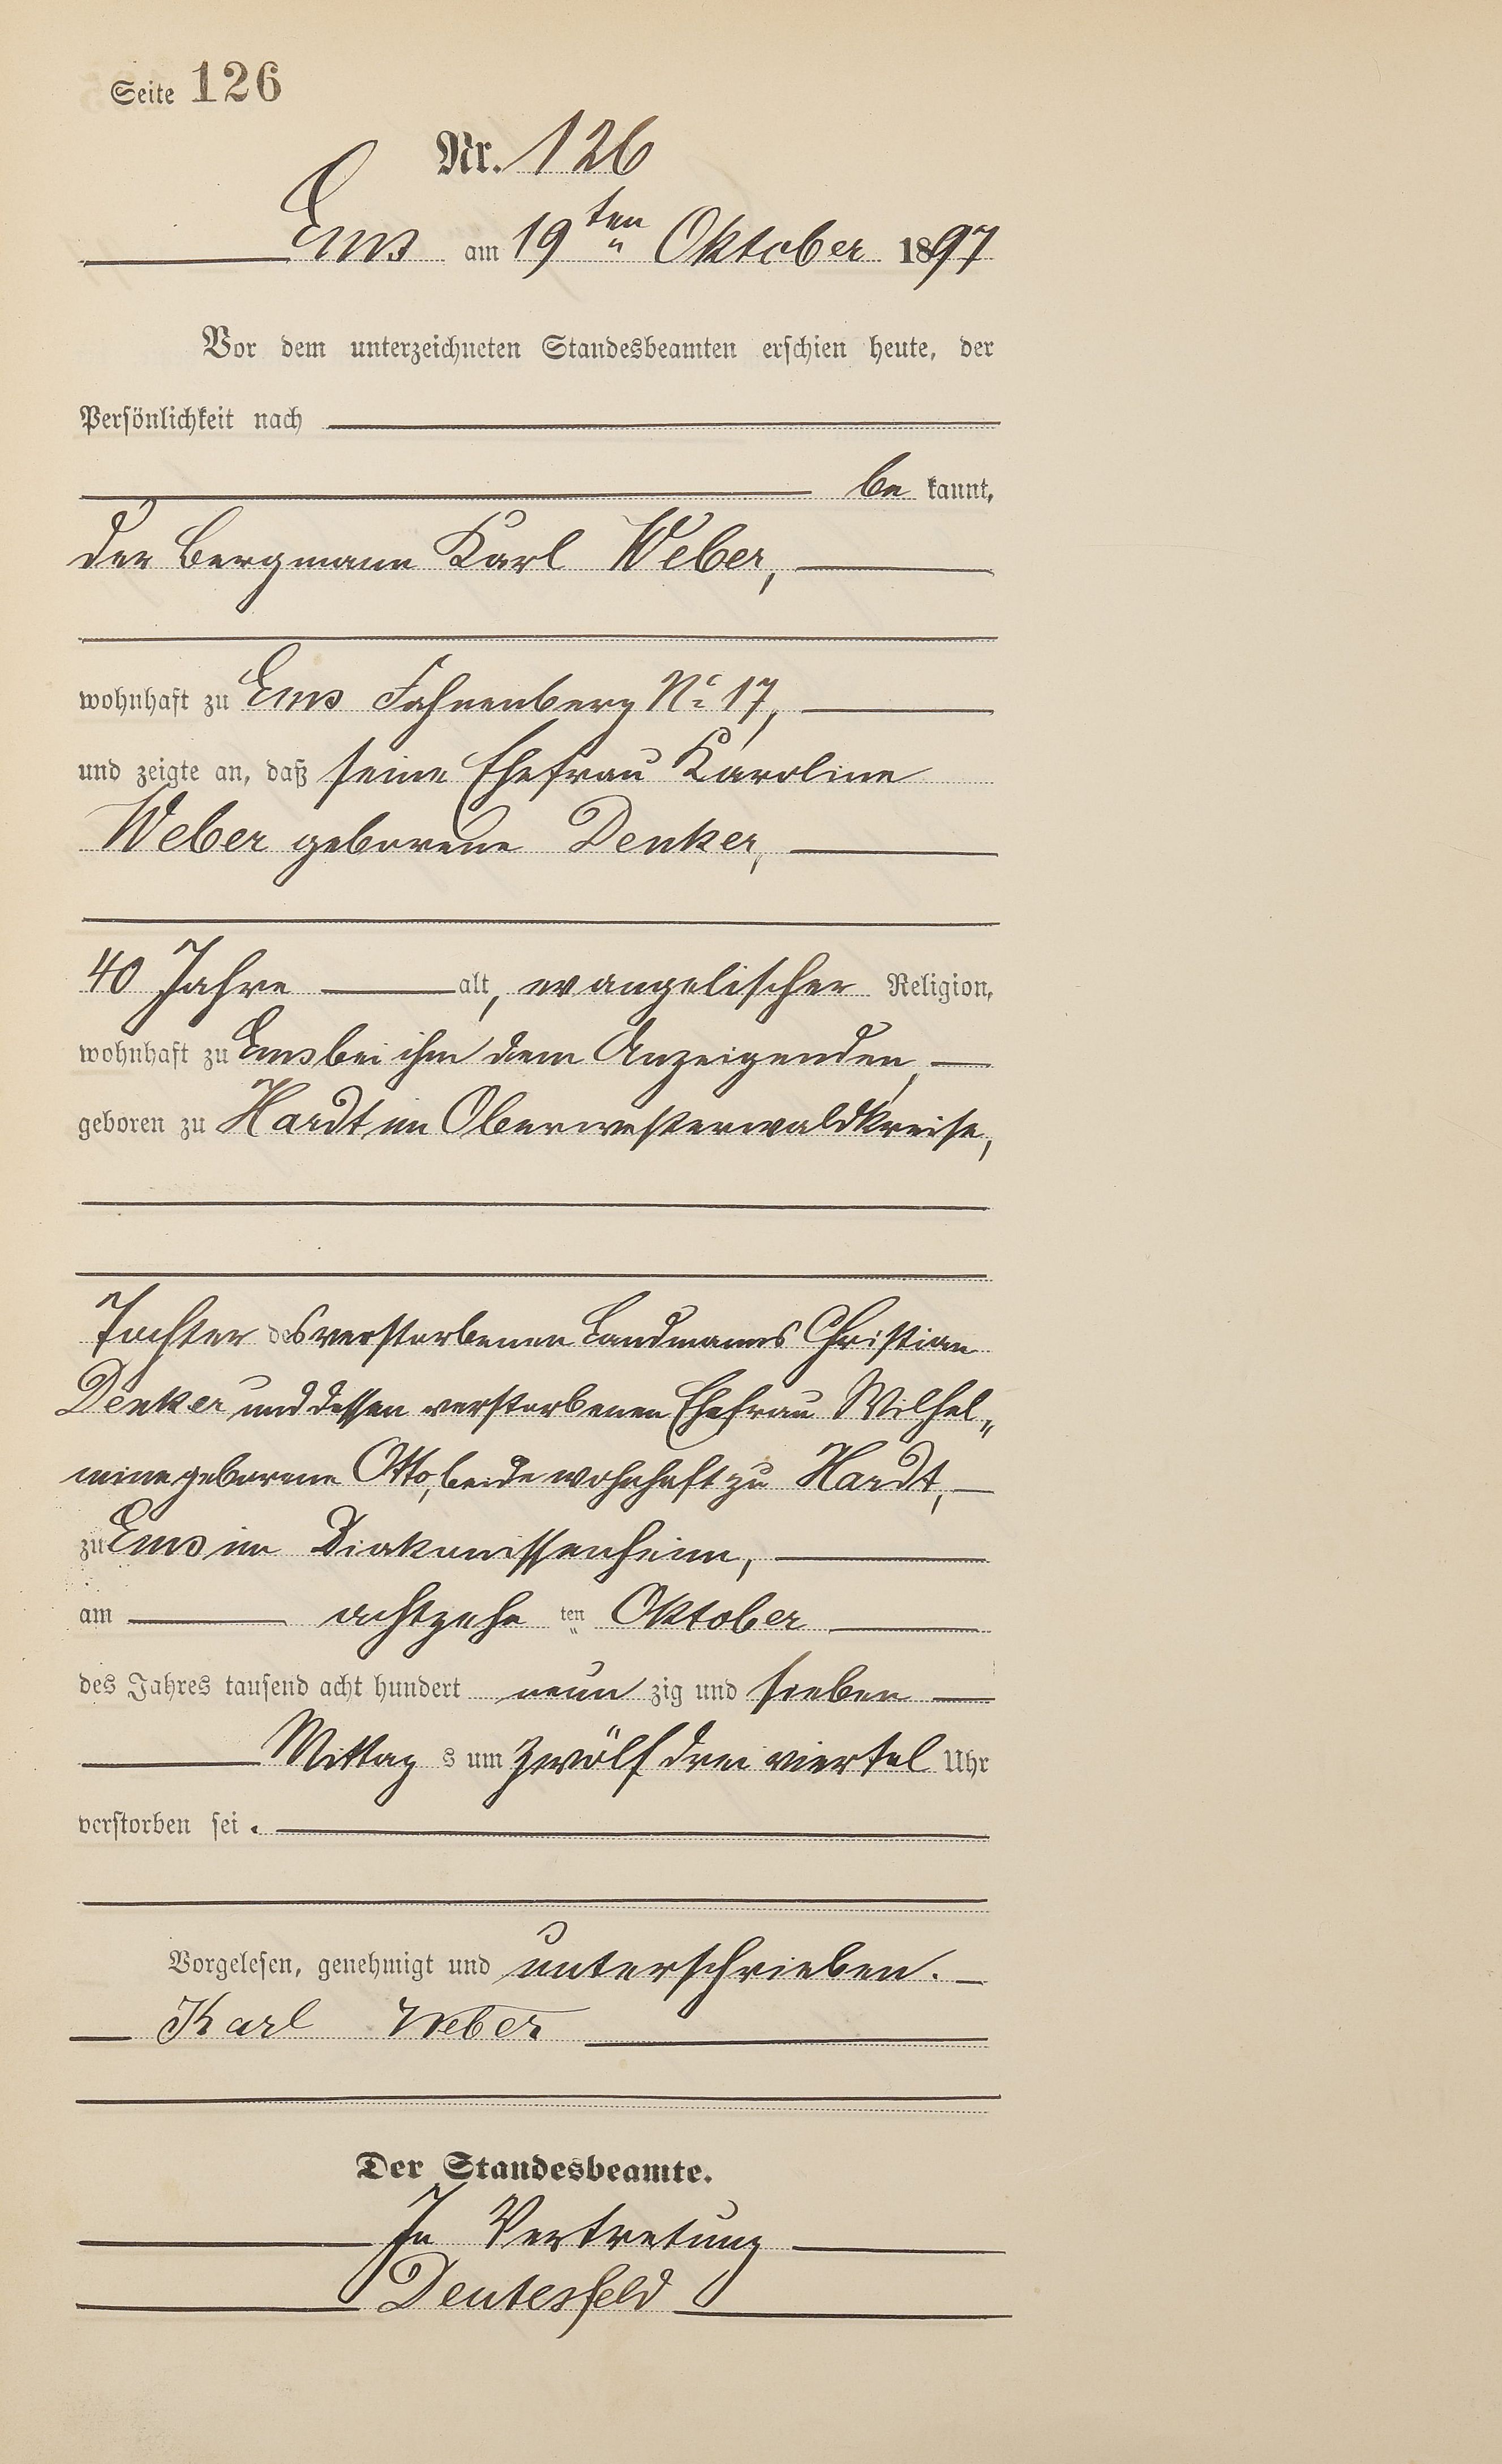 Seite 126
Nr. 126
Ems am 19ten Oktober 1897
Vor dem unterzeichneten Standesbeamten erschien heute, der
Persönlichkeit nach
be kannt,
der Bergmann Karl Weber,
wohnhaft zu Ems Fahnenberg No 17,
und zeigte an, daß seine Ehefrau Karoline
Weber geborene Denker,
40 Jahre alt, evangelischer Religion,
wohnhaft zu Ems bei ihm dem Anzeigenden,
geboren zu Hardt im Oberwesterwaldkreise,
Tochter des verstorbenen Landmanns Christian
Denker und dessen verstorbenen Ehefrau Wilhel„
mine geborene Otto, beide wohnhaft zu Hardt,
zu Ems im Diakonissenheim,
am achtzehn ten Oktober
des Jahres tausend acht hundert neun zig und sieben
Mittag s um zwölf drei viertel Uhr
verstorben sei.
Vorgelesen, genehmigt und unterschrieben.
Karl Weber
Der Standesbeamte.
In Vertretung
Deutesfeld